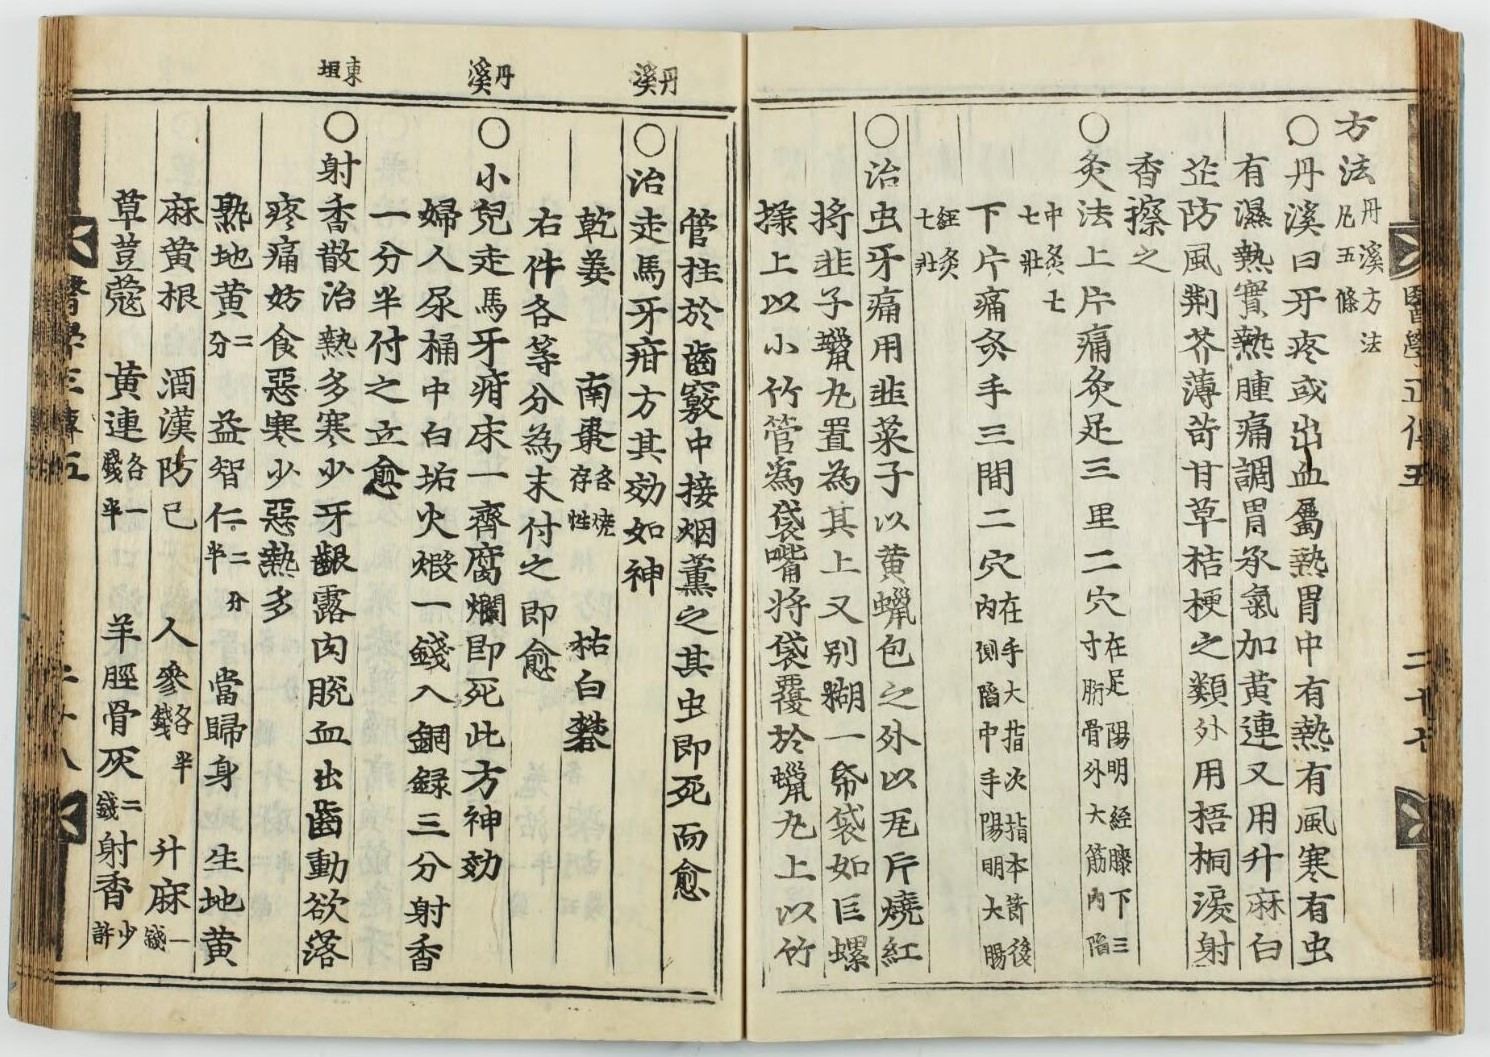 方法丹溪方法凡五條
○丹溪曰牙疼或出血屬熱胃中有熱有風寒有虫
有濕熱實熱腫痛調胃承氣加黃連又用升麻白
芷防風荆芥薄苛甘草桔梗之類外用梧桐淚射
香擦之
○灸法上片痛灸足三里二穴在足陽明經膝下三寸胻骨外大筋內陷
中灸七七壯
下片痛灸手三間二穴在手大指次指本莭後內側陷中手陽明大腸
經灸七壯
○治虫牙痛用韭菜子以黃蠟包之外以瓦片燒紅
將韭子蠟丸置為其上又別糊一帋袋如巨螺
㨾上以小竹管爲袋嘴將袋覆於蠟丸上以竹
醫學正傳五
二十七
管拄於齒竅中接烟薰之其虫即死而愈
丹溪
○治走馬牙疳方其効如神
乾姜
南棗各燒存性
枯白礬
右件各等分為末付之即愈
丹溪
○小兒走馬牙疳床一齊腐爛即死此方神効
婦人尿桶中白垢火煆一錢入銅録三分射香
一分半付之立愈
東垣
○射香散治熱多寒少牙齦露肉脫血出齒動欲落
疼痛妨食惡寒少惡熱多
熟地黃二分
益智仁二分半
當歸身
生地黃
麻黃根
酒漢防己
人參各半錢
升麻一錢
草荳蔲
黃連各一錢半
羊脛骨灰二錢
射香少許
醫學正傳五
二十八